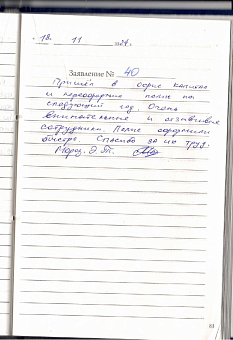 18. 11 2024.
Заявление № 40
Пришёл в офис компании
и переоформил полис на
следующий год. Очень
внимательные и отзывчивые
сотрудники. Полис оформили
быстро. Спасибо за их труд.
Мороз. Э. Т.